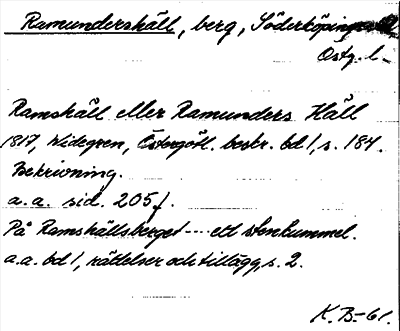 Ramundershäll, berg, Söderköping
Östg. l.
Ramshäll eller Ramunders Häll
1817, Widegren, Östergötl. beskr. bd 1, s. 184.
Beskrivning.
a.a. sid. 205 f.
På Ramshällsberget --- ett stenkummel.
a.a. bd 1, rättelser och tillägg, s. 2.
K. B-61.